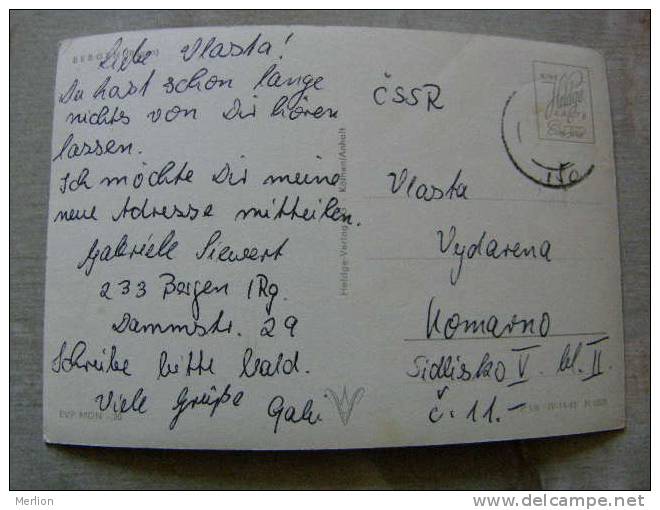 BERGEN
Liebe Vlasta!
Du hast schon lange
nichts von Dir hören
lassen.
Ich möchte Dir meine
neue Adresse mitteilen.
Gabriele Siewert
233 Bergen /Rg.
Dammstr. 29
Schreibe bitte bald.
Viele Grüße
Gabi
EVP MDN -,20
Heldge-Verlag Köthen/Anhalt
ČSSR
Vlasta
Vydarena
Komarno
Sidlisko V. bl. II
č. 11.-
Merlion
www.delcampe.net